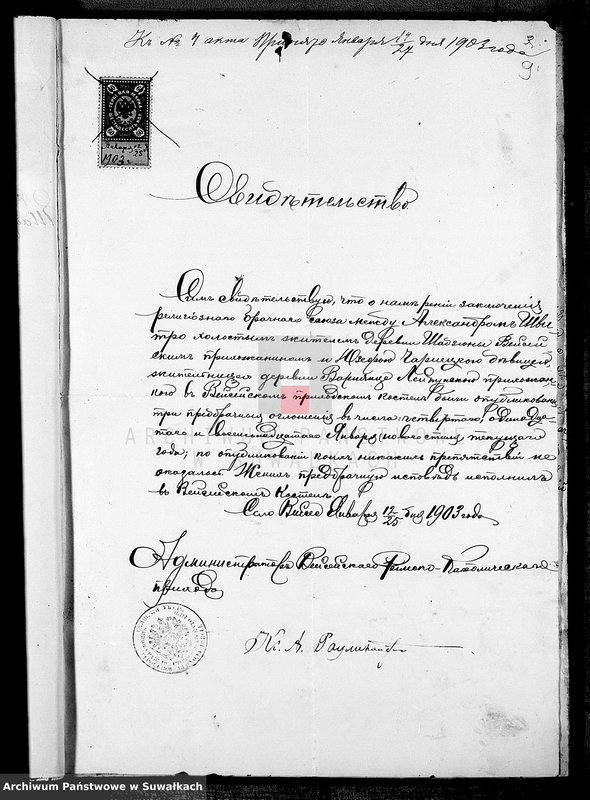 Къ № 7 акта Января 14/27 дня 1903 года
9
Января 12/25
1903 г.
Свидѣтельство.
Симъ свидѣтельствую, что о намѣреніи заключенія
религіознаго брачнаго союза между Александромъ Шве-
тро холостымъ жителемъ деревни
скимъ прихожаниномъ и Юзефою Чарнецкою дѣвицей,
жительницей деревни прихожан-
кою въ Вейсейскомъ приходскомъ костелѣ были опубликованы
три предбрачныя оглашенія въ числахъ: четвертаго, одиннадца-
таго и восемнадцатаго Января (новаго стиля) текущаго
года; по опубликованіи коихъ никакихъ препятствій не
оказалось. Женихъ предбрачную исповѣдь исполнилъ
въ Вейсейскомъ Костелѣ.
Село Января 12/25 дня 1903 года
Администраторъ Вейсейскаго Римско-Католическаго
прихода
Кс. А.
ARCHIWUM PAŃSTWOWE
W SUWAŁKACH
Archiwum Państwowe w Suwałkach